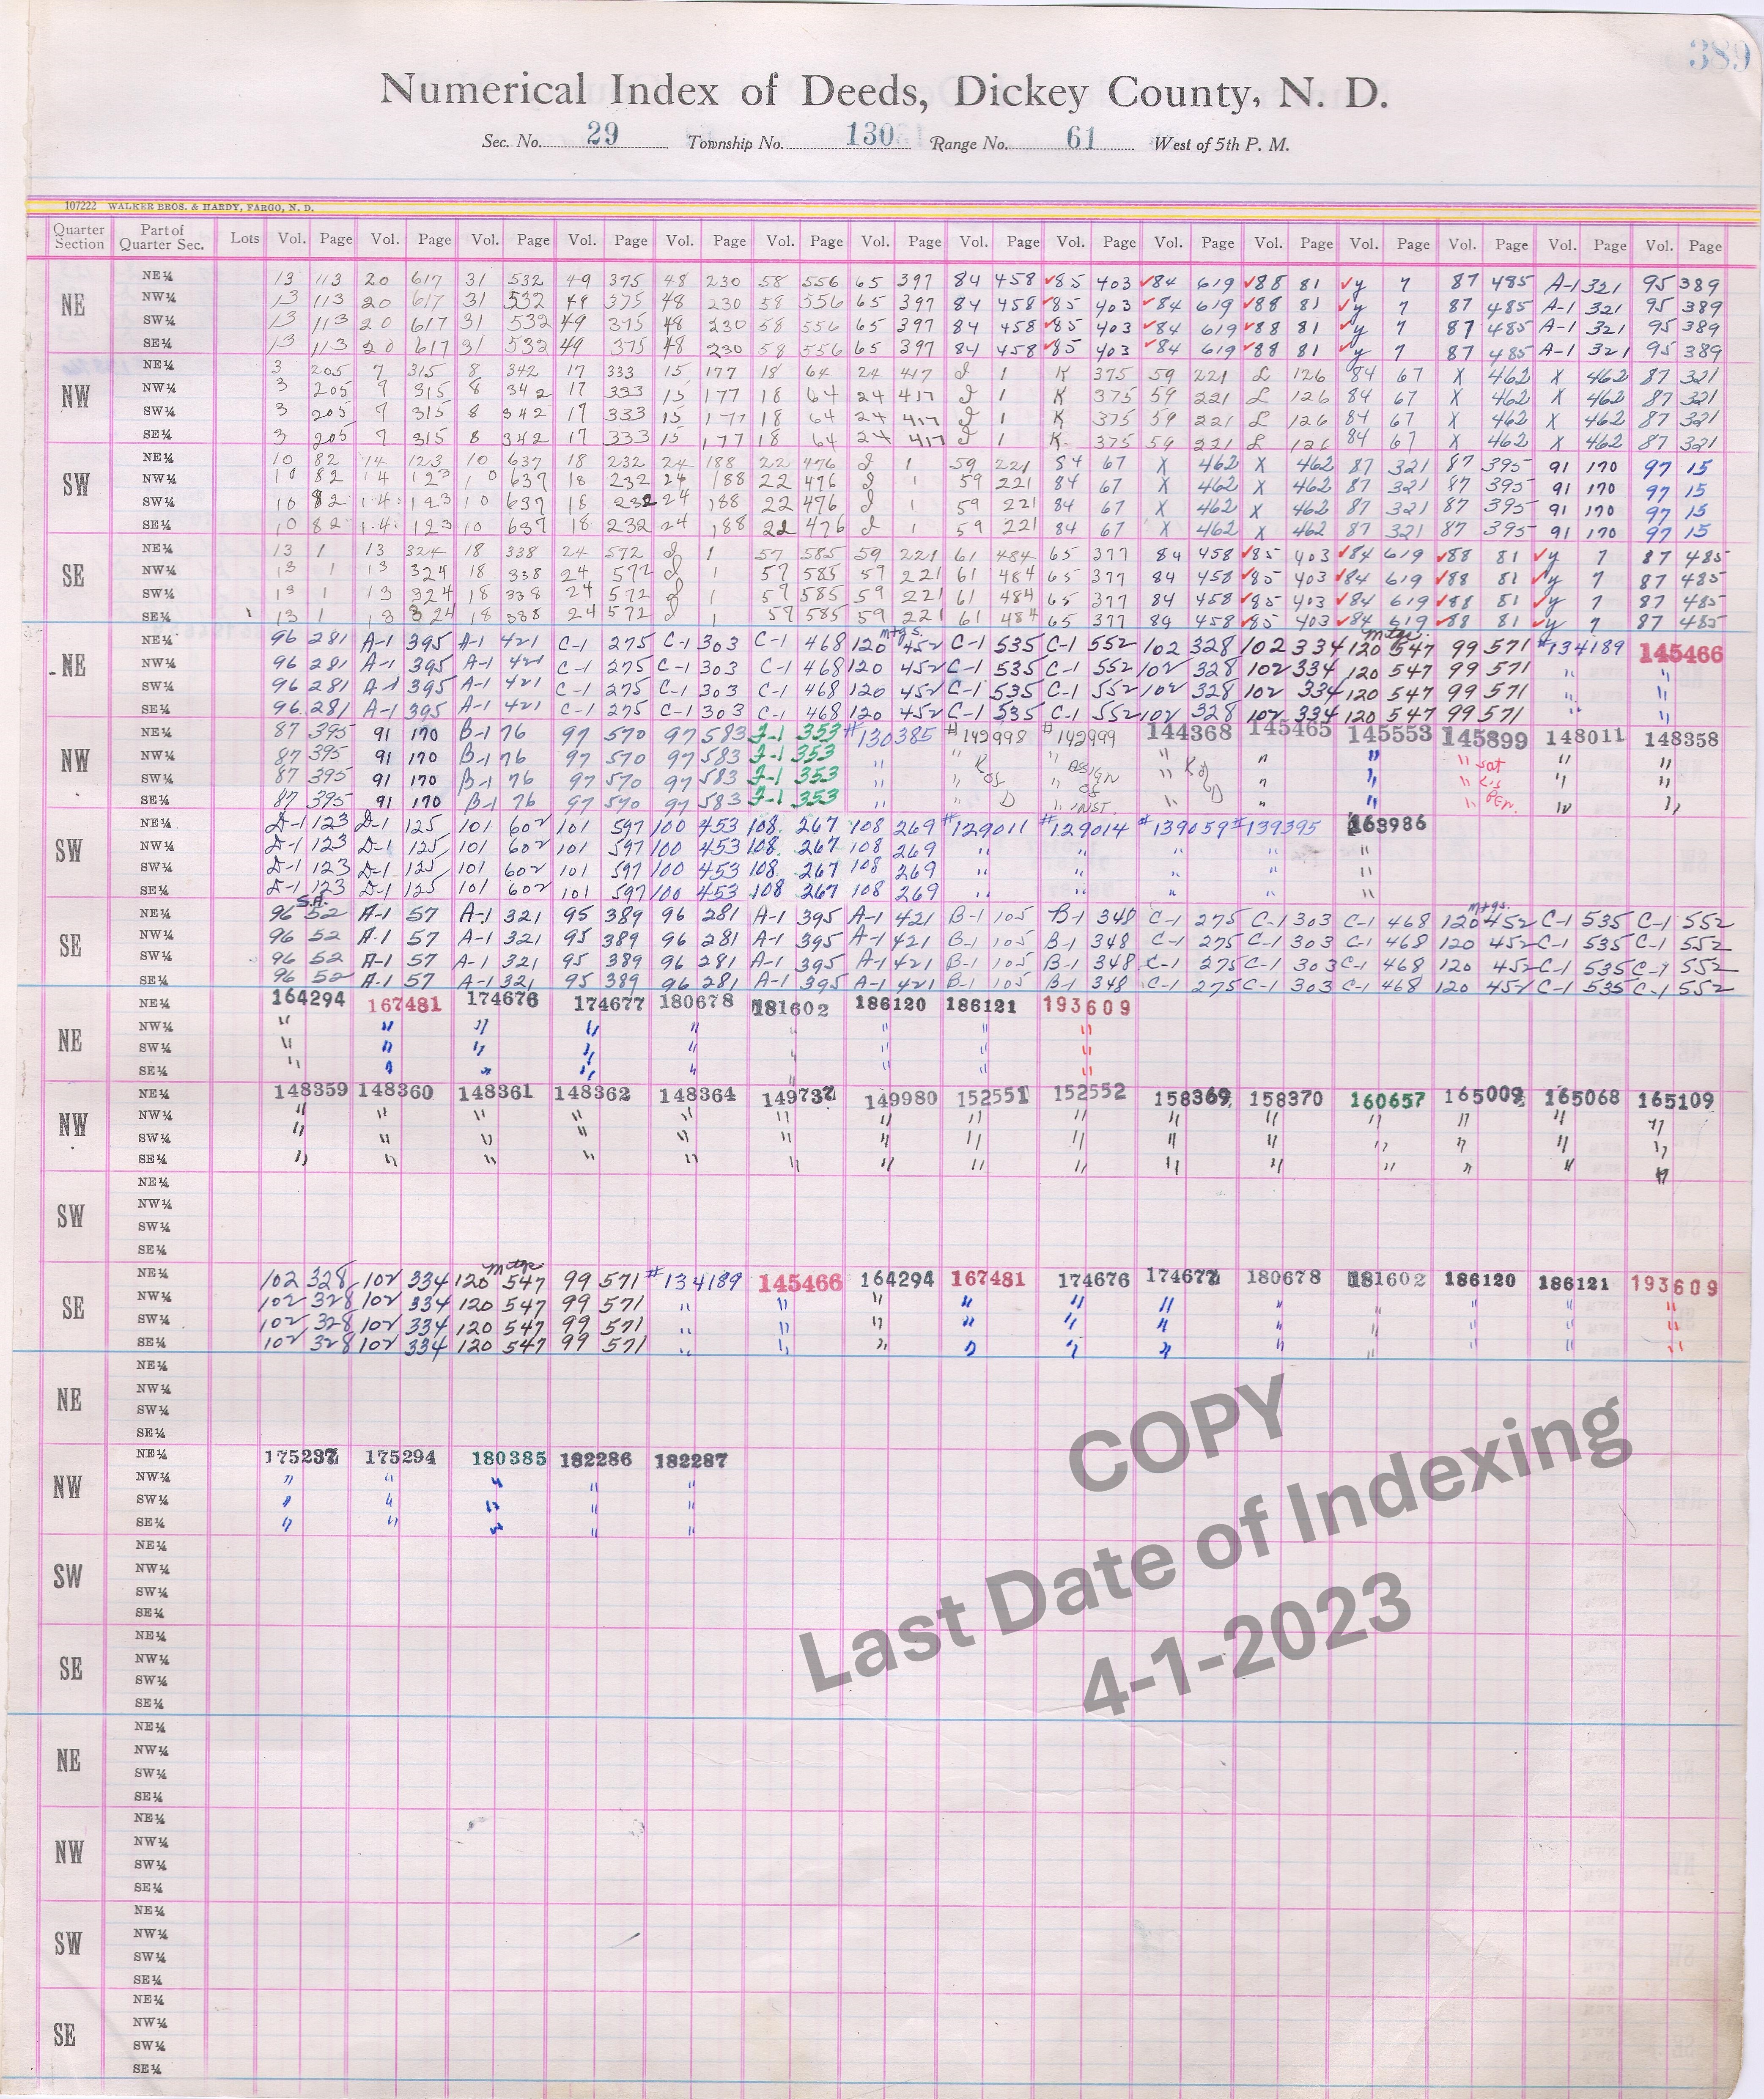 389
Numerical Index of Deeds, Dickey County, N. D.
Sec. No. 29 Township No. 130 Range No. 61 West of 5th P. M.
107222 WALKER BROS. & HARDY, FARGO, N. D.
Quarter Section Part of Quarter Sec. Lots Vol. Page Vol. Page Vol. Page Vol. Page Vol. Page Vol. Page Vol. Page Vol. Page Vol. Page Vol. Page Vol. Page Vol. Page Vol. Page Vol. Page Vol. Page
NE NE¼ 13 113 20 617 31 532 49 375 48 230 58 556 65 397 84 458 ✓85 403 ✓84 619 ✓88 81 ✓y 7 87 485 A-1 321 95 389
NW¼ 13 113 20 617 31 532 49 375 48 230 58 556 65 397 84 458 ✓85 403 ✓84 619 ✓88 81 ✓y 7 87 485 A-1 321 95 389
SW¼ 13 113 20 617 31 532 49 375 48 230 58 556 65 397 84 458 ✓85 403 ✓84 619 ✓88 81 ✓y 7 87 485 A-1 321 95 389
SE¼ 13 113 20 617 31 532 49 375 48 230 58 556 65 397 84 458 ✓85 403 ✓84 619 ✓88 81 ✓y 7 87 485 A-1 321 95 389
NW NE¼ 3 205 7 315 8 342 17 333 15 177 18 64 24 417 1 K 375 59 221 L 126 84 67 X 462 X 462 87 321
NW¼ 3 205 9 315 8 342 17 333 15 177 18 64 24 417 1 K 375 59 221 L 126 84 67 X 462 X 462 87 321
SW¼ 3 205 9 315 8 342 17 333 15 177 18 64 24 417 1 K 375 59 221 L 126 84 67 X 462 X 462 87 321
SE¼ 3 205 9 315 8 342 17 333 15 177 18 64 24 417 1 K 375 59 221 L 126 84 67 X 462 X 462 87 321
SW NE¼ 10 82 14 123 10 637 18 232 24 188 22 476 1 59 221 84 67 X 462 X 462 87 321 87 395 91 170 97 15
NW¼ 10 82 14 123 10 637 18 232 24 188 22 476 1 59 221 84 67 X 462 X 462 87 321 87 395 91 170 97 15
SW¼ 10 82 14 123 10 637 18 232 24 188 22 476 1 59 221 84 67 X 462 X 462 87 321 87 395 91 170 97 15
SE¼ 10 82 14 123 10 637 18 232 24 188 22 476 1 59 221 84 67 X 462 X 462 87 321 87 395 91 170 97 15
SE NE¼ 13 1 13 324 18 338 24 572 1 57 585 59 221 61 484 65 377 84 458 ✓85 403 ✓84 619 ✓88 81 ✓y 7 87 485
NW¼ 13 1 13 324 18 338 24 572 1 57 585 59 221 61 484 65 377 84 458 ✓85 403 ✓84 619 ✓88 81 ✓y 7 87 485
SW¼ 13 1 13 324 18 338 24 572 1 57 585 59 221 61 484 65 377 84 458 ✓85 403 ✓84 619 ✓88 81 ✓y 7 87 485
SE¼ 13 1 13 324 18 338 24 572 1 57 585 59 221 61 484 65 377 84 458 ✓85 403 ✓84 619 ✓88 81 ✓y 7 87 485
mtgs. mtge.
NE NE¼ 96 281 A-1 395 A-1 421 C-1 275 C-1 303 C-1 468 120 452 C-1 535 C-1 552 102 328 102 334 120 547 99 571 #134189 145466
NW¼ 96 281 A-1 395 A-1 421 C-1 275 C-1 303 C-1 468 120 452 C-1 535 C-1 552 102 328 102 334 120 547 99 571 " "
SW¼ 96 281 A-1 395 A-1 421 C-1 275 C-1 303 C-1 468 120 452 C-1 535 C-1 552 102 328 102 334 120 547 99 571 " "
SE¼ 96 281 A-1 395 A-1 421 C-1 275 C-1 303 C-1 468 120 452 C-1 535 C-1 552 102 328 102 334 120 547 99 571 " "
NW NE¼ 87 395 91 170 B-1 76 97 570 97 583 J-1 353 #130385 #142998 #142999 144368 145465 145553 145899 148011 148358
NW¼ 87 395 91 170 B-1 76 97 570 97 583 J-1 353 " " K " ASSIGN " K of " " " sat " "
SW¼ 87 395 91 170 B-1 76 97 570 97 583 J-1 353 " " of " of " D " " " " "
SE¼ 87 395 91 170 B-1 76 97 570 97 583 J-1 353 " " D " INST. " " " " " "
SW NE¼ D-1 123 D-1 125 101 602 101 597 100 453 108 267 108 269 #129011 #129014 #139059 #139395 163986
NW¼ D-1 123 D-1 125 101 602 101 597 100 453 108 267 108 269 " " " " "
SW¼ D-1 123 D-1 125 101 602 101 597 100 453 108 267 108 269 " " " " "
SE¼ D-1 123 D-1 125 101 602 101 597 100 453 108 267 108 269 " " " " "
S.A. mtgs.
SE NE¼ 96 52 A-1 57 A-1 321 95 389 96 281 A-1 395 A-1 421 B-1 105 B-1 348 C-1 275 C-1 303 C-1 468 120 452 C-1 535 C-1 552
NW¼ 96 52 A-1 57 A-1 321 95 389 96 281 A-1 395 A-1 421 B-1 105 B-1 348 C-1 275 C-1 303 C-1 468 120 452 C-1 535 C-1 552
SW¼ 96 52 A-1 57 A-1 321 95 389 96 281 A-1 395 A-1 421 B-1 105 B-1 348 C-1 275 C-1 303 C-1 468 120 452 C-1 535 C-1 552
SE¼ 96 52 A-1 57 A-1 321 95 389 96 281 A-1 395 A-1 421 B-1 105 B-1 348 C-1 275 C-1 303 C-1 468 120 452 C-1 535 C-1 552
NE NE¼ 164294 167481 174676 174677 180678 181602 186120 186121 193609
NW¼ " " " " " " " "
SW¼ " " " " " " " " "
SE¼ " " " " " " " " "
NW NE¼ 148359 148360 148361 148362 148364 149737 149980 152551 152552 158369 158370 160657 165009 165068 165109
NW¼ " " " " " " " " " " " " " " "
SW¼ " " " " " " " " " " " " " " "
SE¼ " " " " " " " " " " " " " " "
SW NE¼
NW¼
SW¼
SE¼
mtge
SE NE¼ 102 328 102 334 120 547 99 571 #134189 145466 164294 167481 174676 174677 180678 181602 186120 186121 193609
NW¼ 102 328 102 334 120 547 99 571 " " " " " " " " " " "
SW¼ 102 328 102 334 120 547 99 571 " " " " " " " " " " "
SE¼ 102 328 102 334 120 547 99 571 " " " " " " " " " " "
NE NE¼
NW¼
SW¼
SE¼
NW NE¼ 175237 175294 180385 182286 182287
NW¼ " " " " "
SW¼ " " " " "
SE¼ " " " " "
SW NE¼
NW¼
SW¼
SE¼
SE NE¼
NW¼
SW¼
SE¼
NE NE¼
NW¼
SW¼
SE¼
NW NE¼
NW¼
SW¼
SE¼
SW NE¼
NW¼
SW¼
SE¼
SE NE¼
NW¼
SW¼
SE¼
COPY
Last Date of Indexing
4-1-2023